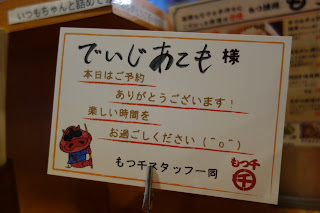 いつもちゃんと詰めて
でいじあこも 様
本日はご予約
ありがとうございます!
楽しい時間を
お過ごしください(^o^)
もつ千スタッフ一同
もつ千
千